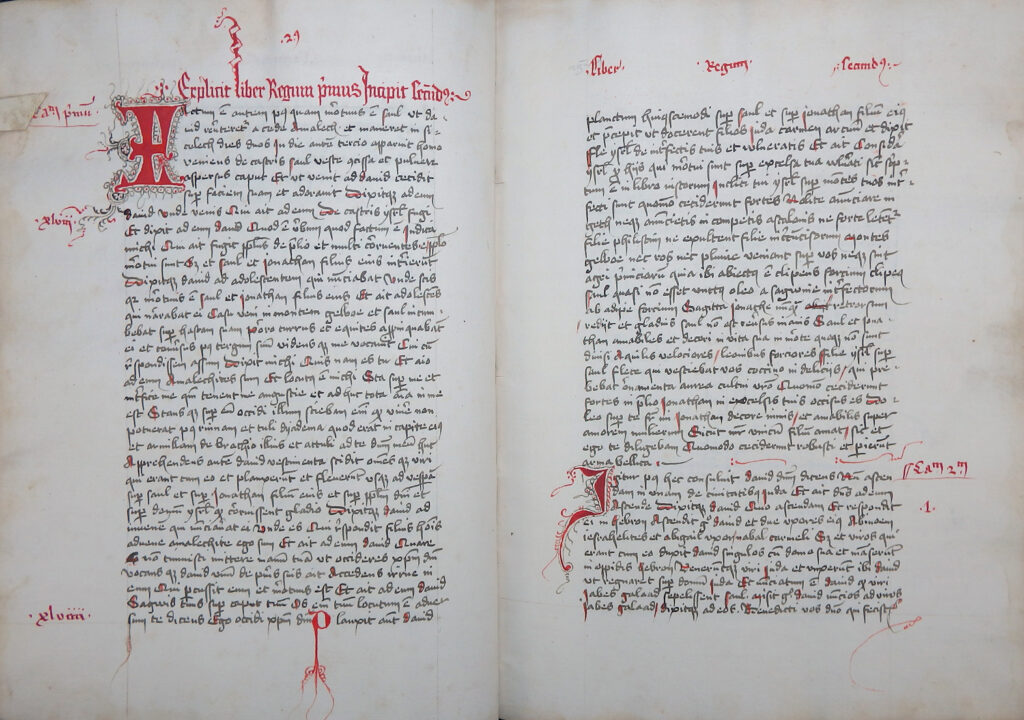 .29
Explicit liber Regum p̄mus Incipit sec̄nd9
Cam p̄mū
Factum ē autem pꝗ quam mortuus ē saul ut da
uid reuerteret a cede Amalech et maneret in si
celech dies duos In die autē tercio apparuit homo
veniens de castris saul veste scissa et puluere
aspersus caput Et ut venit ad dauid cecidit
suꝑ faciem suam et adorauit Dixitqꝫ ad eum
dauid unde venis Qui ait ad eum De castris ysrl fugi
xlviii
Et dixit ad eum dauid Quod ē v̄bum quod factum ē indica
michi Qui ait fugit ppl̄us de p̄lio et multi corruentes e pplo
mortui sunt Sꝫ et saul et ionathan filius eius int̄ierūt
Dixitqꝫ dauid ad adolescentem qui nūciabat Unde scis
qꝛ mortuus ē saul et ionathan filius eius Et ait adolescēs
qui narrabat ei Casu veni in montem gelboe et saul incum
bebat suꝑ hastam suam Porro currus et equites appīquabāt
ei et conu̓sus pꝗ tergum suū videns qꝫ me vocauit Cui cū
r̄spondissem assum Dixit michi Quis nam es tu Et aio
ad eum Amalechites sum Et locutꝯ ē michi Sta suꝑ me et
int̄fice me qm̄ tenent me angustie et adhuc tota aīa in me
est Stansqꝫ suꝑ eū occidi illum sciebam em̄ qꝫ viue̓ non
poterat pꝗ ruinam et tuli dyadema quod erat in capite eiꝯ
et armillam de brachio illius et attuli ad te dn̄m meū huc
Apprehendens autē dauid vestimenta scidit om̄esqꝫ viri
qui erant cum eo et planxerūt et fleuerūt usqꝫ ad vesꝑā
suꝑ saul et suꝑ ionathan filium eius et suꝑ ppl̄m dn̄i et
suꝑ domū ysrl qꝫ corruissent gladio Dixitqꝫ dauid ad
iuuenē qui nūciauāt ei Unde es Qui r̄spondit filius hoīs
aduene amalechite ego sum Et ait ad eum dauid Quare
nō timuisti mittere manū tuā ut occideres xp̄m dn̄i
vocansqꝫ dauid unū de pueris suis ait Accedens irrue in
eum Qui ꝑcussit eum et mortuus est Et ait ad eum dauid
Sagwis tuus suꝑ caput tuū Os em̄ tuū locutum ē aduer
xlviiii
sum te dicens Ego occidi xp̄m dn̄i Planxit aut dauid
liber Regum secund9
planctum huiuscemodi suꝑ saul et suꝑ ionathan filiū eiꝯ
et p̄cepit ut docerent filios iuda carmen arcum et dixit
ysrl ꝓ hijs qui mortui sunt suꝑ excelsa tua
tum ē in libro iustorum Incliti tui ysrl suꝑ mōtes tuos int̄
fecti sunt quomō ceciderunt fortes Nolite annūciare in
geth neqꝫ annūcietis in competis ascalonis ne forte letet
filie philistiim ne exultent filie incircūcisorum Montes
gelboe nec ros nec pluuie veniant suꝑ vos neqꝫ sint
agri p̄miciarum quia ibi abiectꝯ ē clipeus forcium clipeꝯ
saul quasi nō esset unctꝯ oleo a sagwine int̄fectorum
ab adipe forcium Sagitta ionathe nūqꝫ retrorsum
redijt et gladius saul nō est reu̓sus inanis Saul et iona
than amabiles et decori in vita sua in morte quoqꝫ nō sunt
diuisi Aquilis velociores leonibus forciores Filie ysrl suꝑ
saul flete qui vestiebat vos coccino in delicijs qui pre
bebat ornamenta aurea cultui vr̄o Quomō ceciderunt
fortes in p̄lio ionathan in excelsis tuis occisus es Do
leo suꝑ te fr̄ mi ionathan decore nimis et amabilis super
amorem mulierum Sicut mr̄ unicū filium amat sic et
ego te diligebam Quomodo ceciderunt robusti et perierūt
arma bellica
Cam 2m
Igitur pꝗ hec consuluit dauid dn̄m dicens Nū ascen
dam in unam de ciuitatibꝫ iuda Et ait dn̄s ad eum
.1.
Ascende Dixitqꝫ dauid Quo ascendam Et respondit
ei in hebron Ascendit gͦ dauid et due uxores eiꝯ Achinoem
iesrahelites et abigail uxor nabal carmeli Sꝫ et viros qui
erant cum eo duxit dauid singulos cū domo sua et manserūt
in oppidis hebron Veneruntqꝫ viri iuda et unxerunt ibi dauid
ut regnaret suꝑ domū iuda Et nūciatum ē dauid qꝫ viri
iabes galaad sepelissent saul. Misit gͦ dauid nūcios ad viros
iabes galaad dixitqꝫ ad eos. Benedicti vos dn̄o qui fecistis